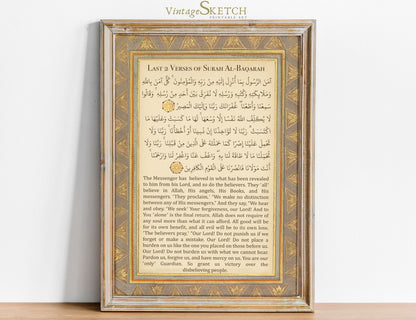 VintageSKETCH
PRINTABLE ART
LAST 2 VERSES OF SURAH AL-BAQARAH
آمَنَ الرَّسُولُ بِمَا أُنْزِلَ إِلَيْهِ مِنْ رَبِّهِ وَالْمُؤْمِنُونَ ۚ كُلٌّ آمَنَ بِاللَّهِ
وَمَلَائِكَتِهِ وَكُتُبِهِ وَرُسُلِهِ لَا نُفَرِّقُ بَيْنَ أَحَدٍ مِنْ رُسُلِهِ ۚ وَقَالُوا
سَمِعْنَا وَأَطَعْنَا ۖ غُفْرَانَكَ رَبَّنَا وَإِلَيْكَ الْمَصِيرُ
لَا يُكَلِّفُ اللَّهُ نَفْسًا إِلَّا وُسْعَهَا ۚ لَهَا مَا كَسَبَتْ وَعَلَيْهَا مَا
اكْتَسَبَتْ ۗ رَبَّنَا لَا تُؤَاخِذْنَا إِنْ نَسِينَا أَوْ أَخْطَأْنَا ۚ رَبَّنَا وَلَا
تَحْمِلْ عَلَيْنَا إِصْرًا كَمَا حَمَلْتَهُ عَلَى الَّذِينَ مِنْ قَبْلِنَا ۚ رَبَّنَا وَلَا
تُحَمِّلْنَا مَا لَا طَاقَةَ لَنَا بِهِ ۖ وَاعْفُ عَنَّا وَاغْفِرْ لَنَا وَارْحَمْنَا ۚ
أَنْتَ مَوْلَانَا فَانْصُرْنَا عَلَى الْقَوْمِ الْكَافِرِينَ
The Messenger has believed in what has been revealed
to him from his Lord, and so do the believers. They ˹all˺
believe in Allah, His angels, His Books, and His
messengers. ˹They proclaim,˺ "We make no distinction
between any of His messengers." And they say, "We hear
and obey. ˹We seek˺ Your forgiveness, our Lord! And to
You ˹alone˺ is the final return. Allah does not require of
any soul more than what it can afford. All good will be
for its own benefit, and all evil will be to its own loss.
˹The believers pray,˺ "Our Lord! Do not punish us if we
forget or make a mistake. Our Lord! Do not place a
burden on us like the one you placed on those before us.
Our Lord! Do not burden us with what we cannot bear.
Pardon us, forgive us, and have mercy on us. You are our
˹only˺ Guardian. So grant us victory over the
disbelieving people.